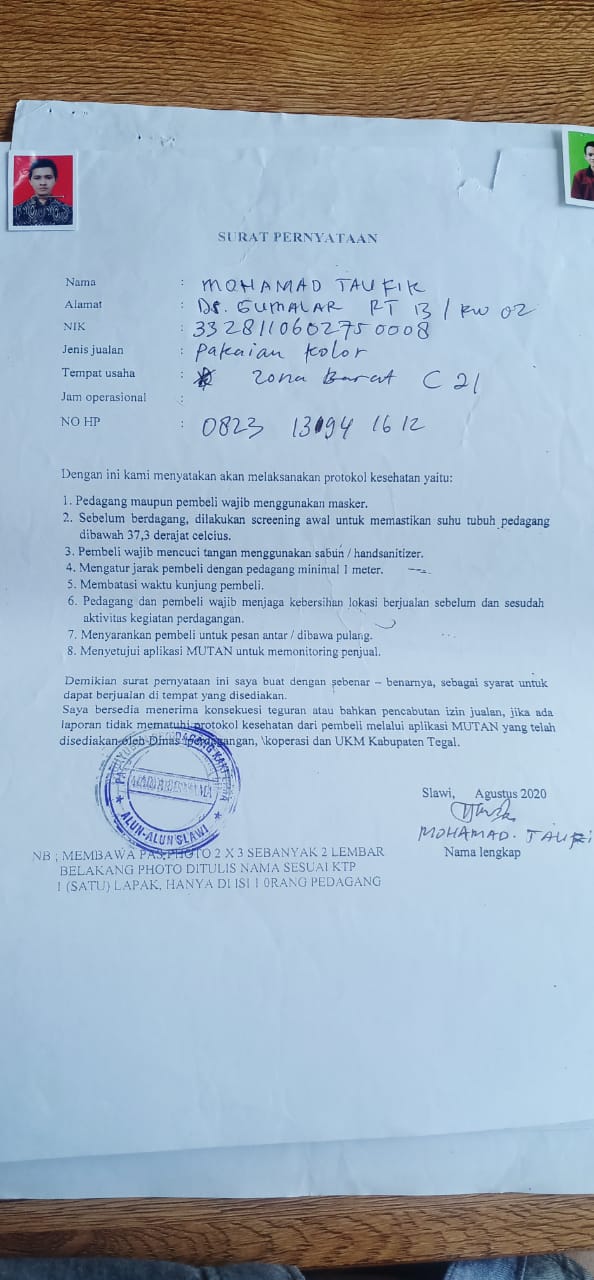 SURAT PERNYATAAN
Nama : MOHAMAD TAUFIK
Alamat : Ds. GUMALAR RT 13 / RW 02
NIK : 3328110602750008
Jenis jualan : Pakaian kolor
Tempat usaha : Zona Barat C 21
Jam operasional :
NO HP : 0823 1394 1612
Dengan ini kami menyatakan akan melaksanakan protokol kesehatan yaitu:
1. Pedagang maupun pembeli wajib menggunakan masker.
2. Sebelum berdagang, dilakukan screening awal untuk memastikan suhu tubuh pedagang
dibawah 37,3 derajat celcius.
3. Pembeli wajib mencuci tangan menggunakan sabun / handsanitizer.
4. Mengatur jarak pembeli dengan pedagang minimal 1 meter.
5. Membatasi waktu kunjung pembeli.
6. Pedagang dan pembeli wajib menjaga kebersihan lokasi berjualan sebelum dan sesudah
aktivitas kegiatan perdagangan.
7. Menyarankan pembeli untuk pesan antar / dibawa pulang.
8. Menyetujui aplikasi MUTAN untuk memonitoring penjual.
Demikian surat pernyataan ini saya buat dengan sebenar – benarnya, sebagai syarat untuk
dapat berjualan di tempat yang disediakan.
Saya bersedia menerima konsekuesi teguran atau bahkan pencabutan izin jualan, jika ada
laporan tidak mematuhi protokol kesehatan dari pembeli melalui aplikasi MUTAN yang telah
disediakan oleh Dinas perdagangan, \koperasi dan UKM Kabupaten Tegal.
PEDAGANG
ALUN-ALUN SLAWI
Slawi, Agustus 2020
MOHAMAD. TAUFI
Nama lengkap
NB ; MEMBAWA PAS PHOTO 2 X 3 SEBANYAK 2 LEMBAR
BELAKANG PHOTO DITULIS NAMA SESUAI KTP
1 (SATU) LAPAK, HANYA DI ISI 1 0RANG PEDAGANG